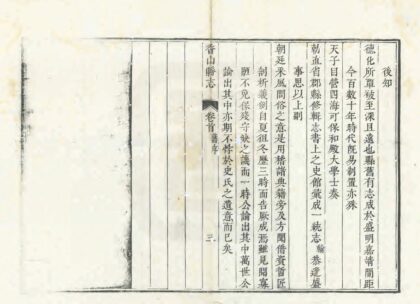 後知
德化所單被至深且遠也縣舊有志成於盛明嘉靖間距
今百數十年時代旣易制置亦殊
天子目營四海可保和殿大學士奏
勅直省郡縣修輯志書上之史館彙成一統志翰恭逢盛
事思以上副
朝廷采風問俗之意是用稽諸典籍旁及方聞借資哲匠
剖析義例自夏徂冬歷三時而告厥成焉雖見聞寡
願不免保殘守缺之譏而一時公論出其中萬世公
論出其中亦期不忤於史氏之遺意而已矣
香山縣志
卷首
舊序
三